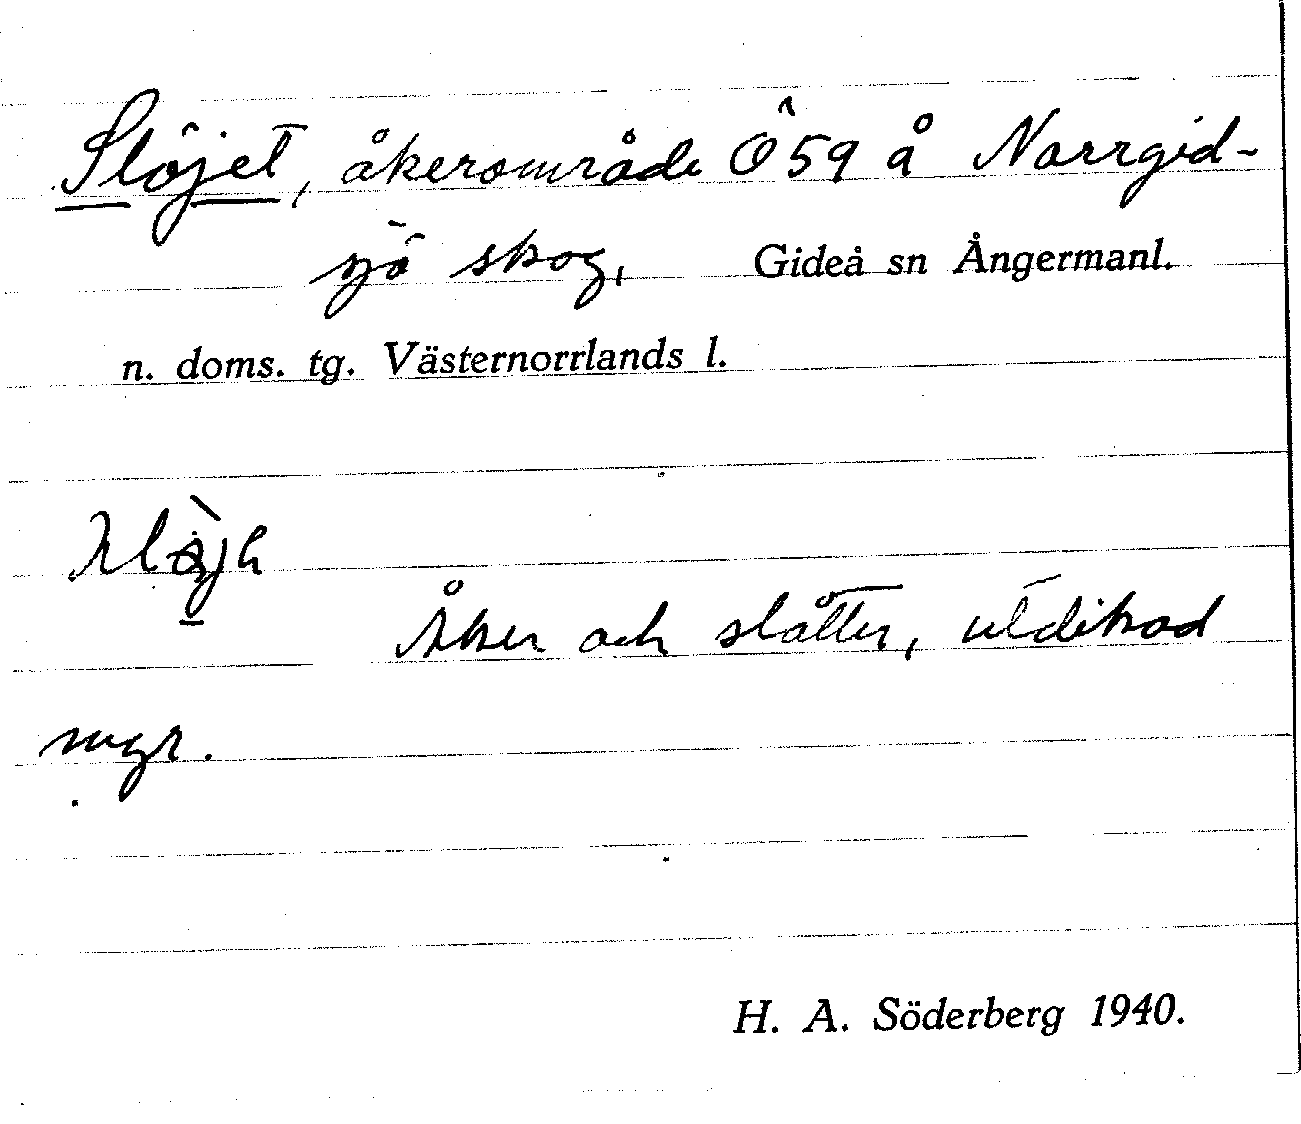 Slöjet, åkerområde Ö 59 å Norrgid-
sjö skog, Gideå sn Ångermanl.
n. doms. tg. Västernorrlands l.
Åker och slåtter, utdikad
myr.
H. A. Söderberg 1940.